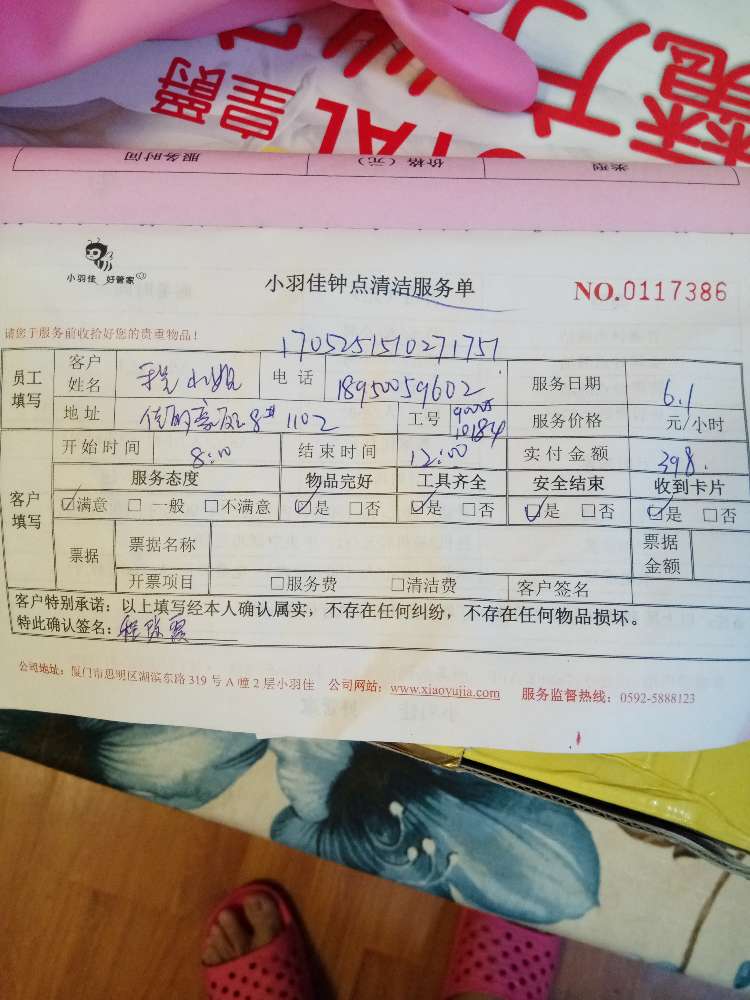 皇爵
TAL
服务时间 价格（元） 类型
小羽佳 好管家
小羽佳钟点清洁服务单
NO.0117386
请您于服务前收拾好您的贵重物品！
170525151027175
员工填写 客户姓名 程小姐 电话 18950059602 服务日期 6.1
地址 8# 1102 工号 90005 10184 服务价格 元/小时
开始时间 8:00 结束时间 12:00 实付金额 398.
客户填写 服务态度 物品完好 工具齐全 安全结束 收到卡片
☑满意 □一般 □不满意 ☑是 □否 ☑是 □否 ☑是 □否 ☑是 □否
票据 票据名称 票据金额
开票项目 □服务费 □清洁费 客户签名
客户特别承诺：以上填写经本人确认属实，不存在任何纠纷，不存在任何物品损坏。
特此确认签名：程
公司地址：厦门市思明区湖滨东路 319 号 A 幢 2 层小羽佳 公司网站：www.xiaoyujia.com 服务监督热线：0592-5888123